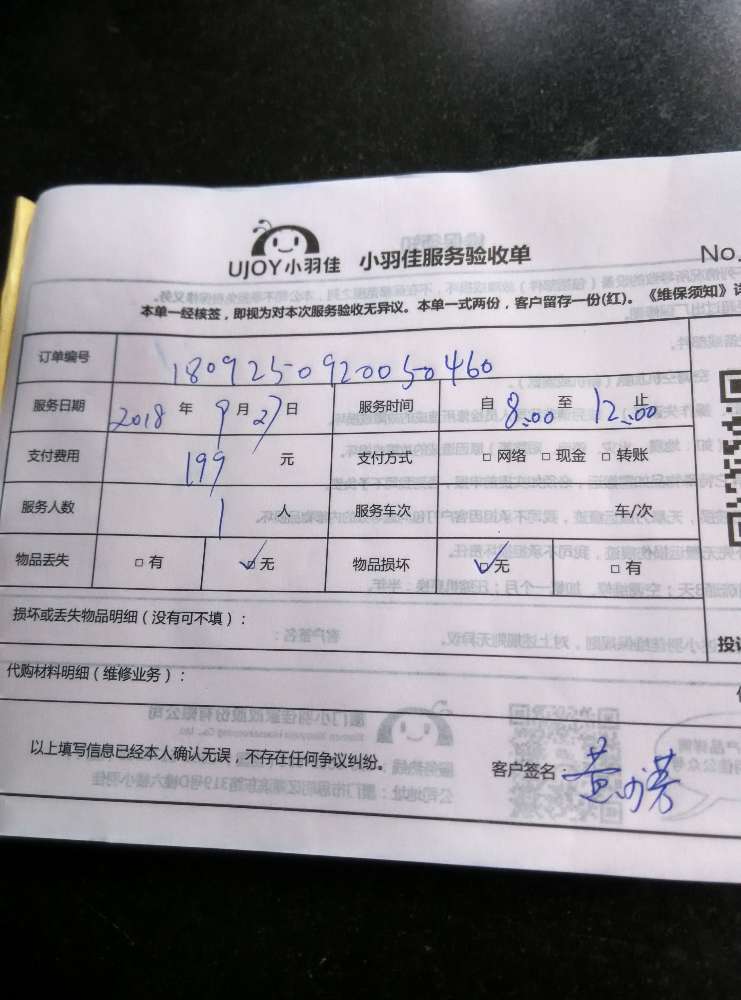 UJOY小羽佳 小羽佳服务验收单 No.
本单一经核签，即视为对本次服务验收无异议。本单一式两份，客户留存一份(红)。《维保须知》
订单编号 180925092005046​0
服务日期 2018 年 9 月 27 日 服务时间 自 8:00 至 12:00 止
支付费用 199 元 支付方式 □ 网络 □ 现金 □ 转账
服务人数 1 人 服务车次 车/次
物品丢失 □ 有 ☑ 无 物品损坏 ☑ 无 □ 有
损坏或丢失物品明细（没有可不填）：
投
代购材料明细（维修业务）：
以上填写信息已经本人确认无误，不存在任何争议纠纷。 客户签名